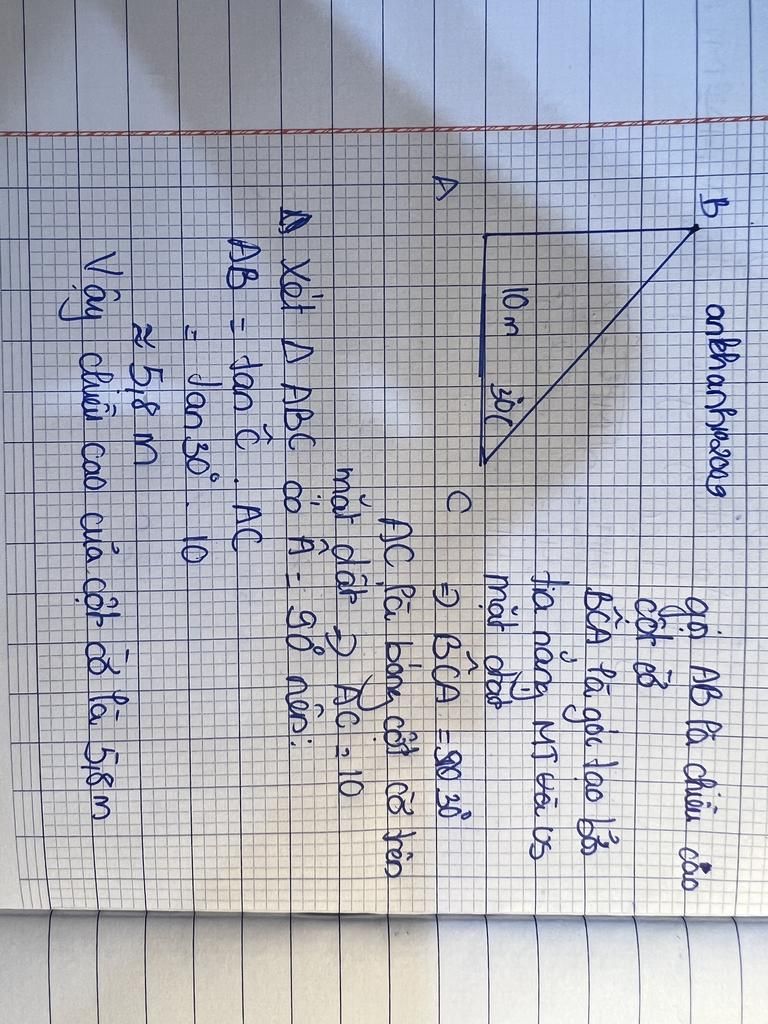 ankhanhn2009
B
A
C
10 m
30°
gọi AB là chiều cao
cột cờ
BĈA là góc tạo bởi
tia nắng MT và vs
mặt đất
=> BĈA = 30°
AC là bóng cột cờ trên
mặt đất => AC = 10
Xét Δ ABC có Â = 90° nên:
AB = tan Ĉ . AC
= tan 30° . 10
≈ 5,8 m
Vậy chiều cao của cột cờ là 5,8 m